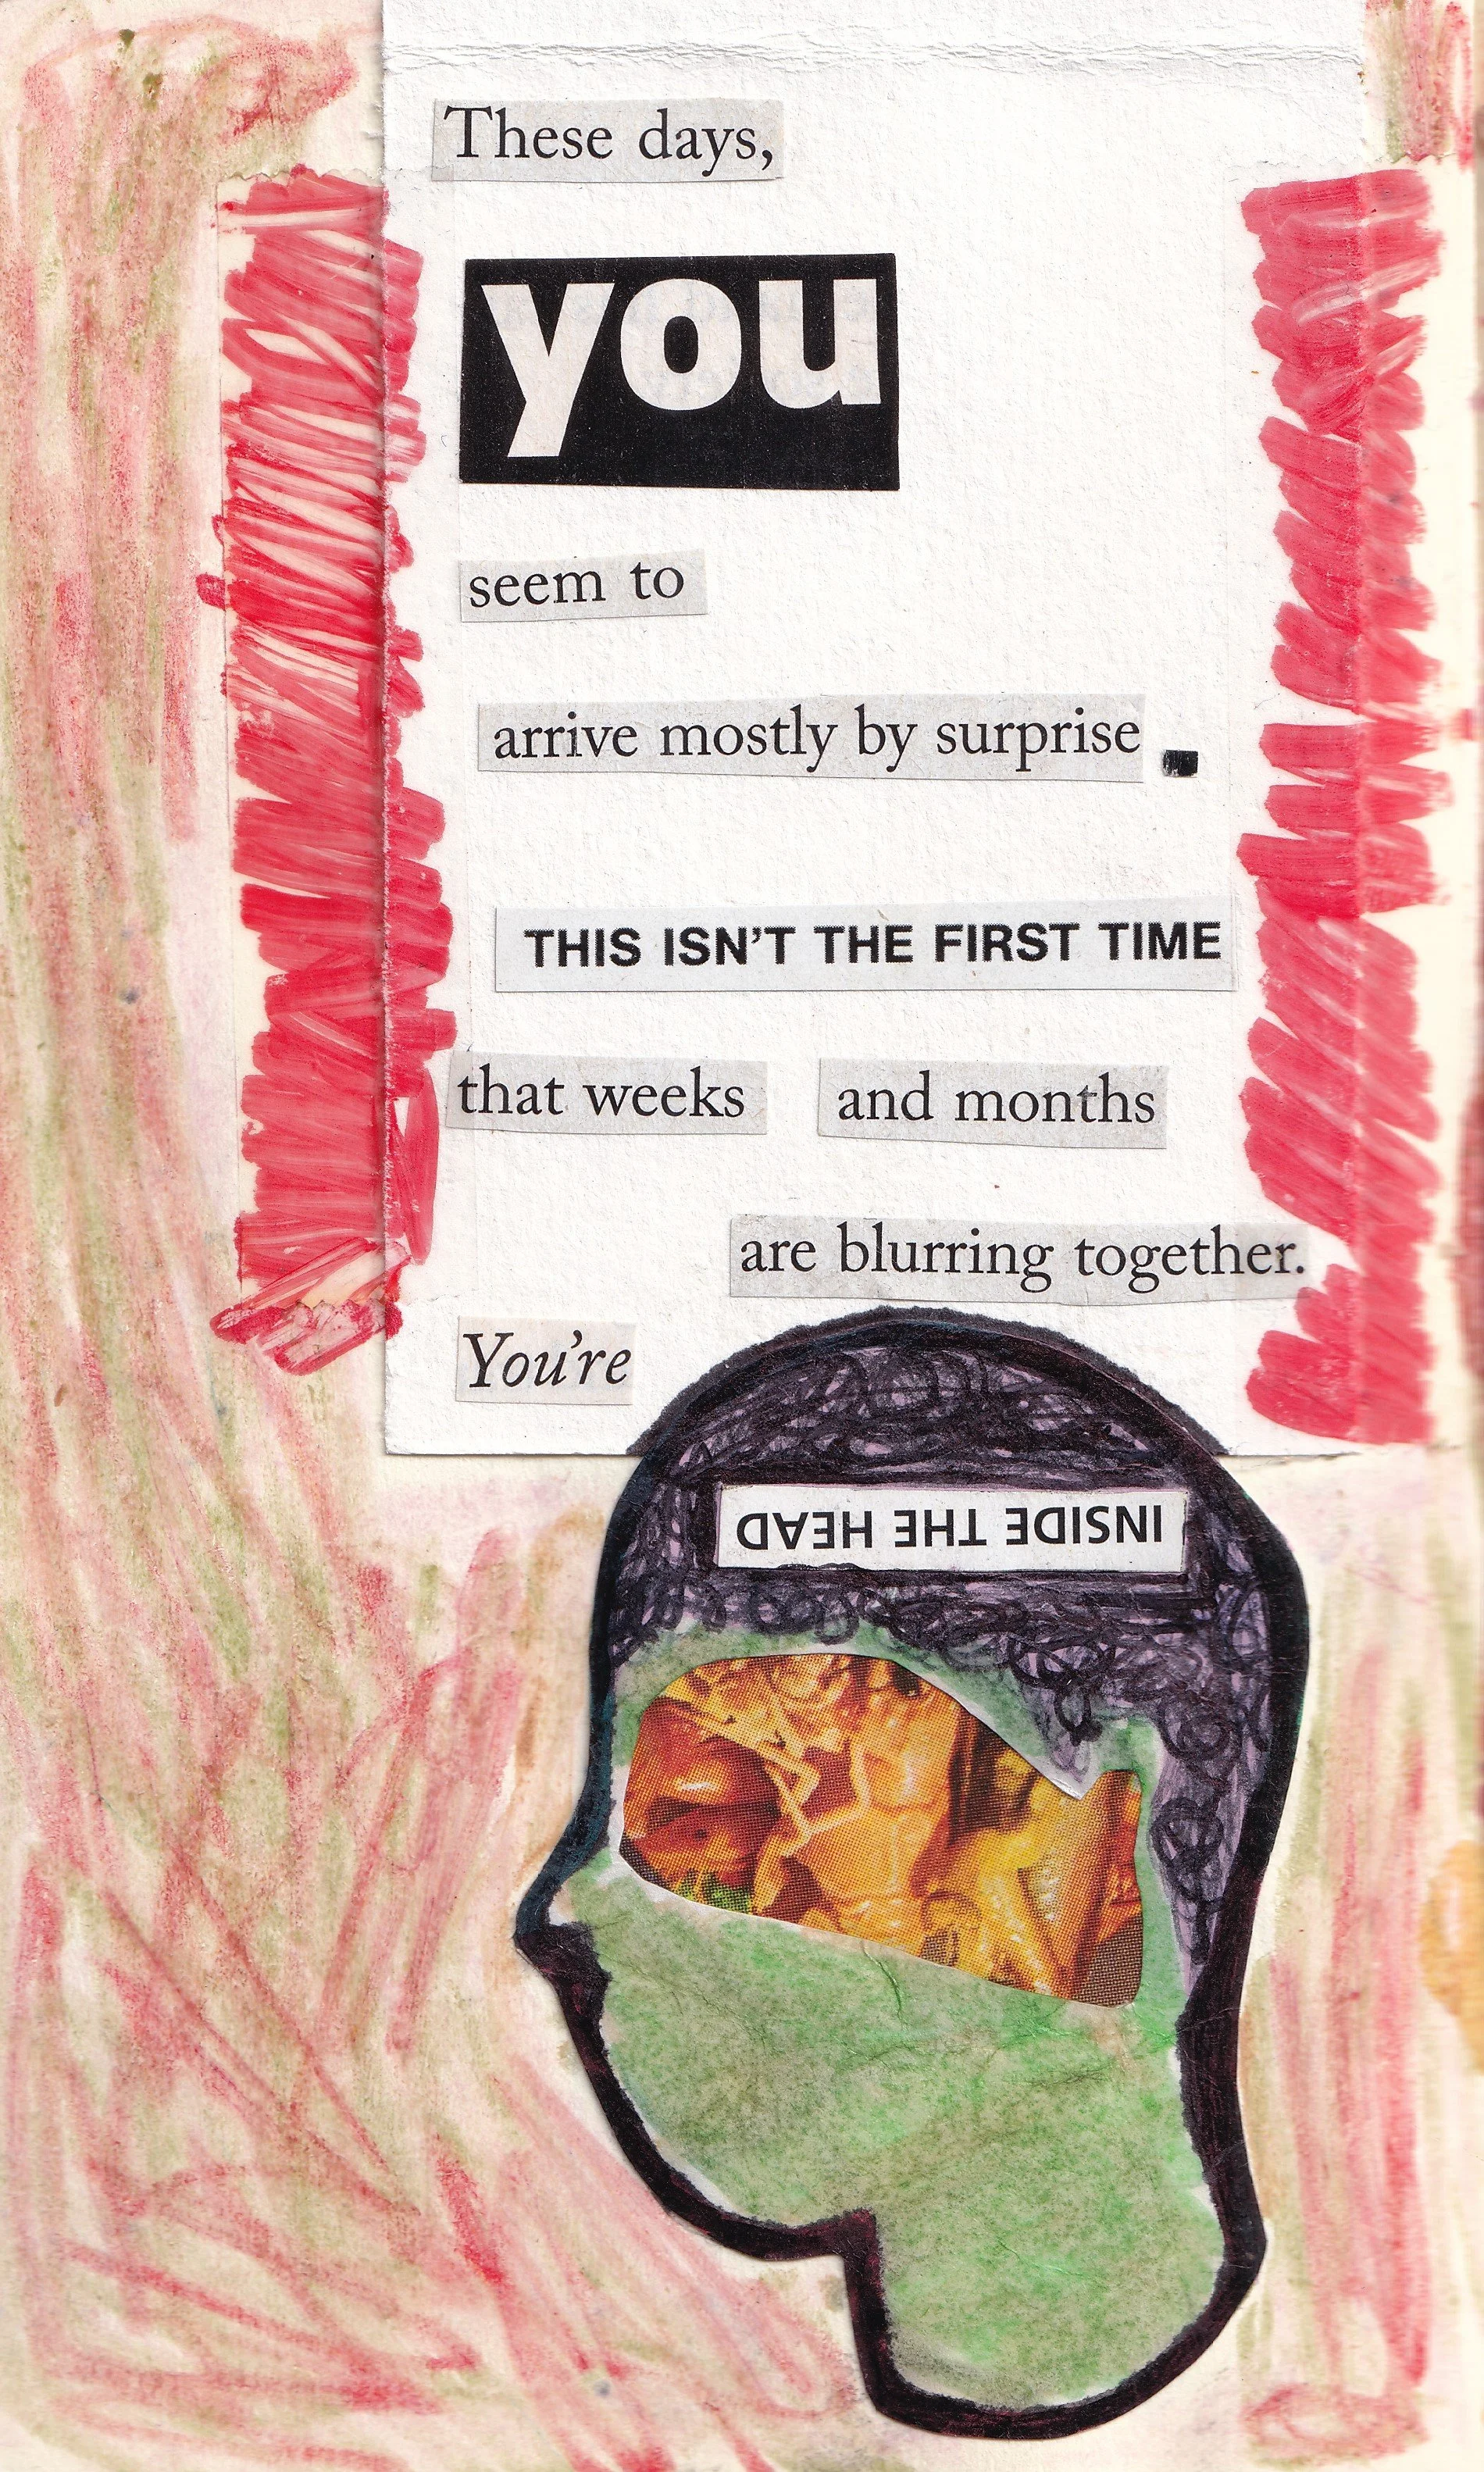 These days,
you
seem to
arrive mostly by surprise.
THIS ISN'T THE FIRST TIME
that weeks and months
are blurring together.
You're
INSIDE THE HEAD